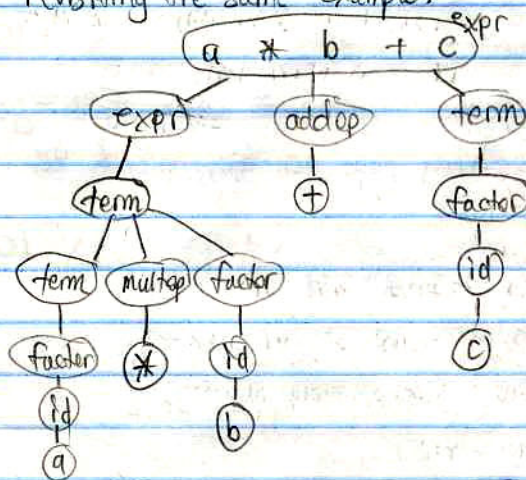 the same example:
expr
a * b + c
expr addop term
term + factor
term multop factor id
factor * id c
id b
a